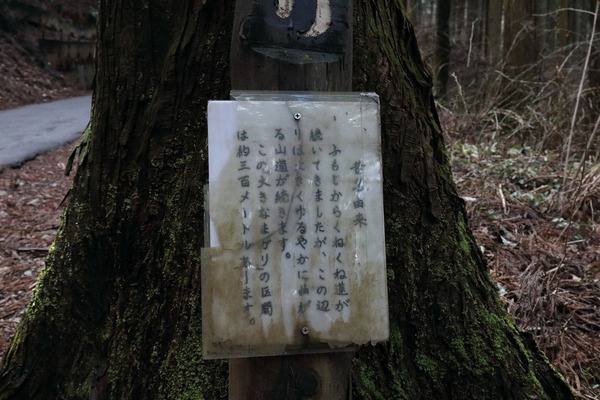 名由来
ふもとからくねくね道が
続いてきましたが、この辺
りは大きくゆるやかに曲が
る山道が続きます。
この大きな「まがり」の区間
は約三百メートルあります。